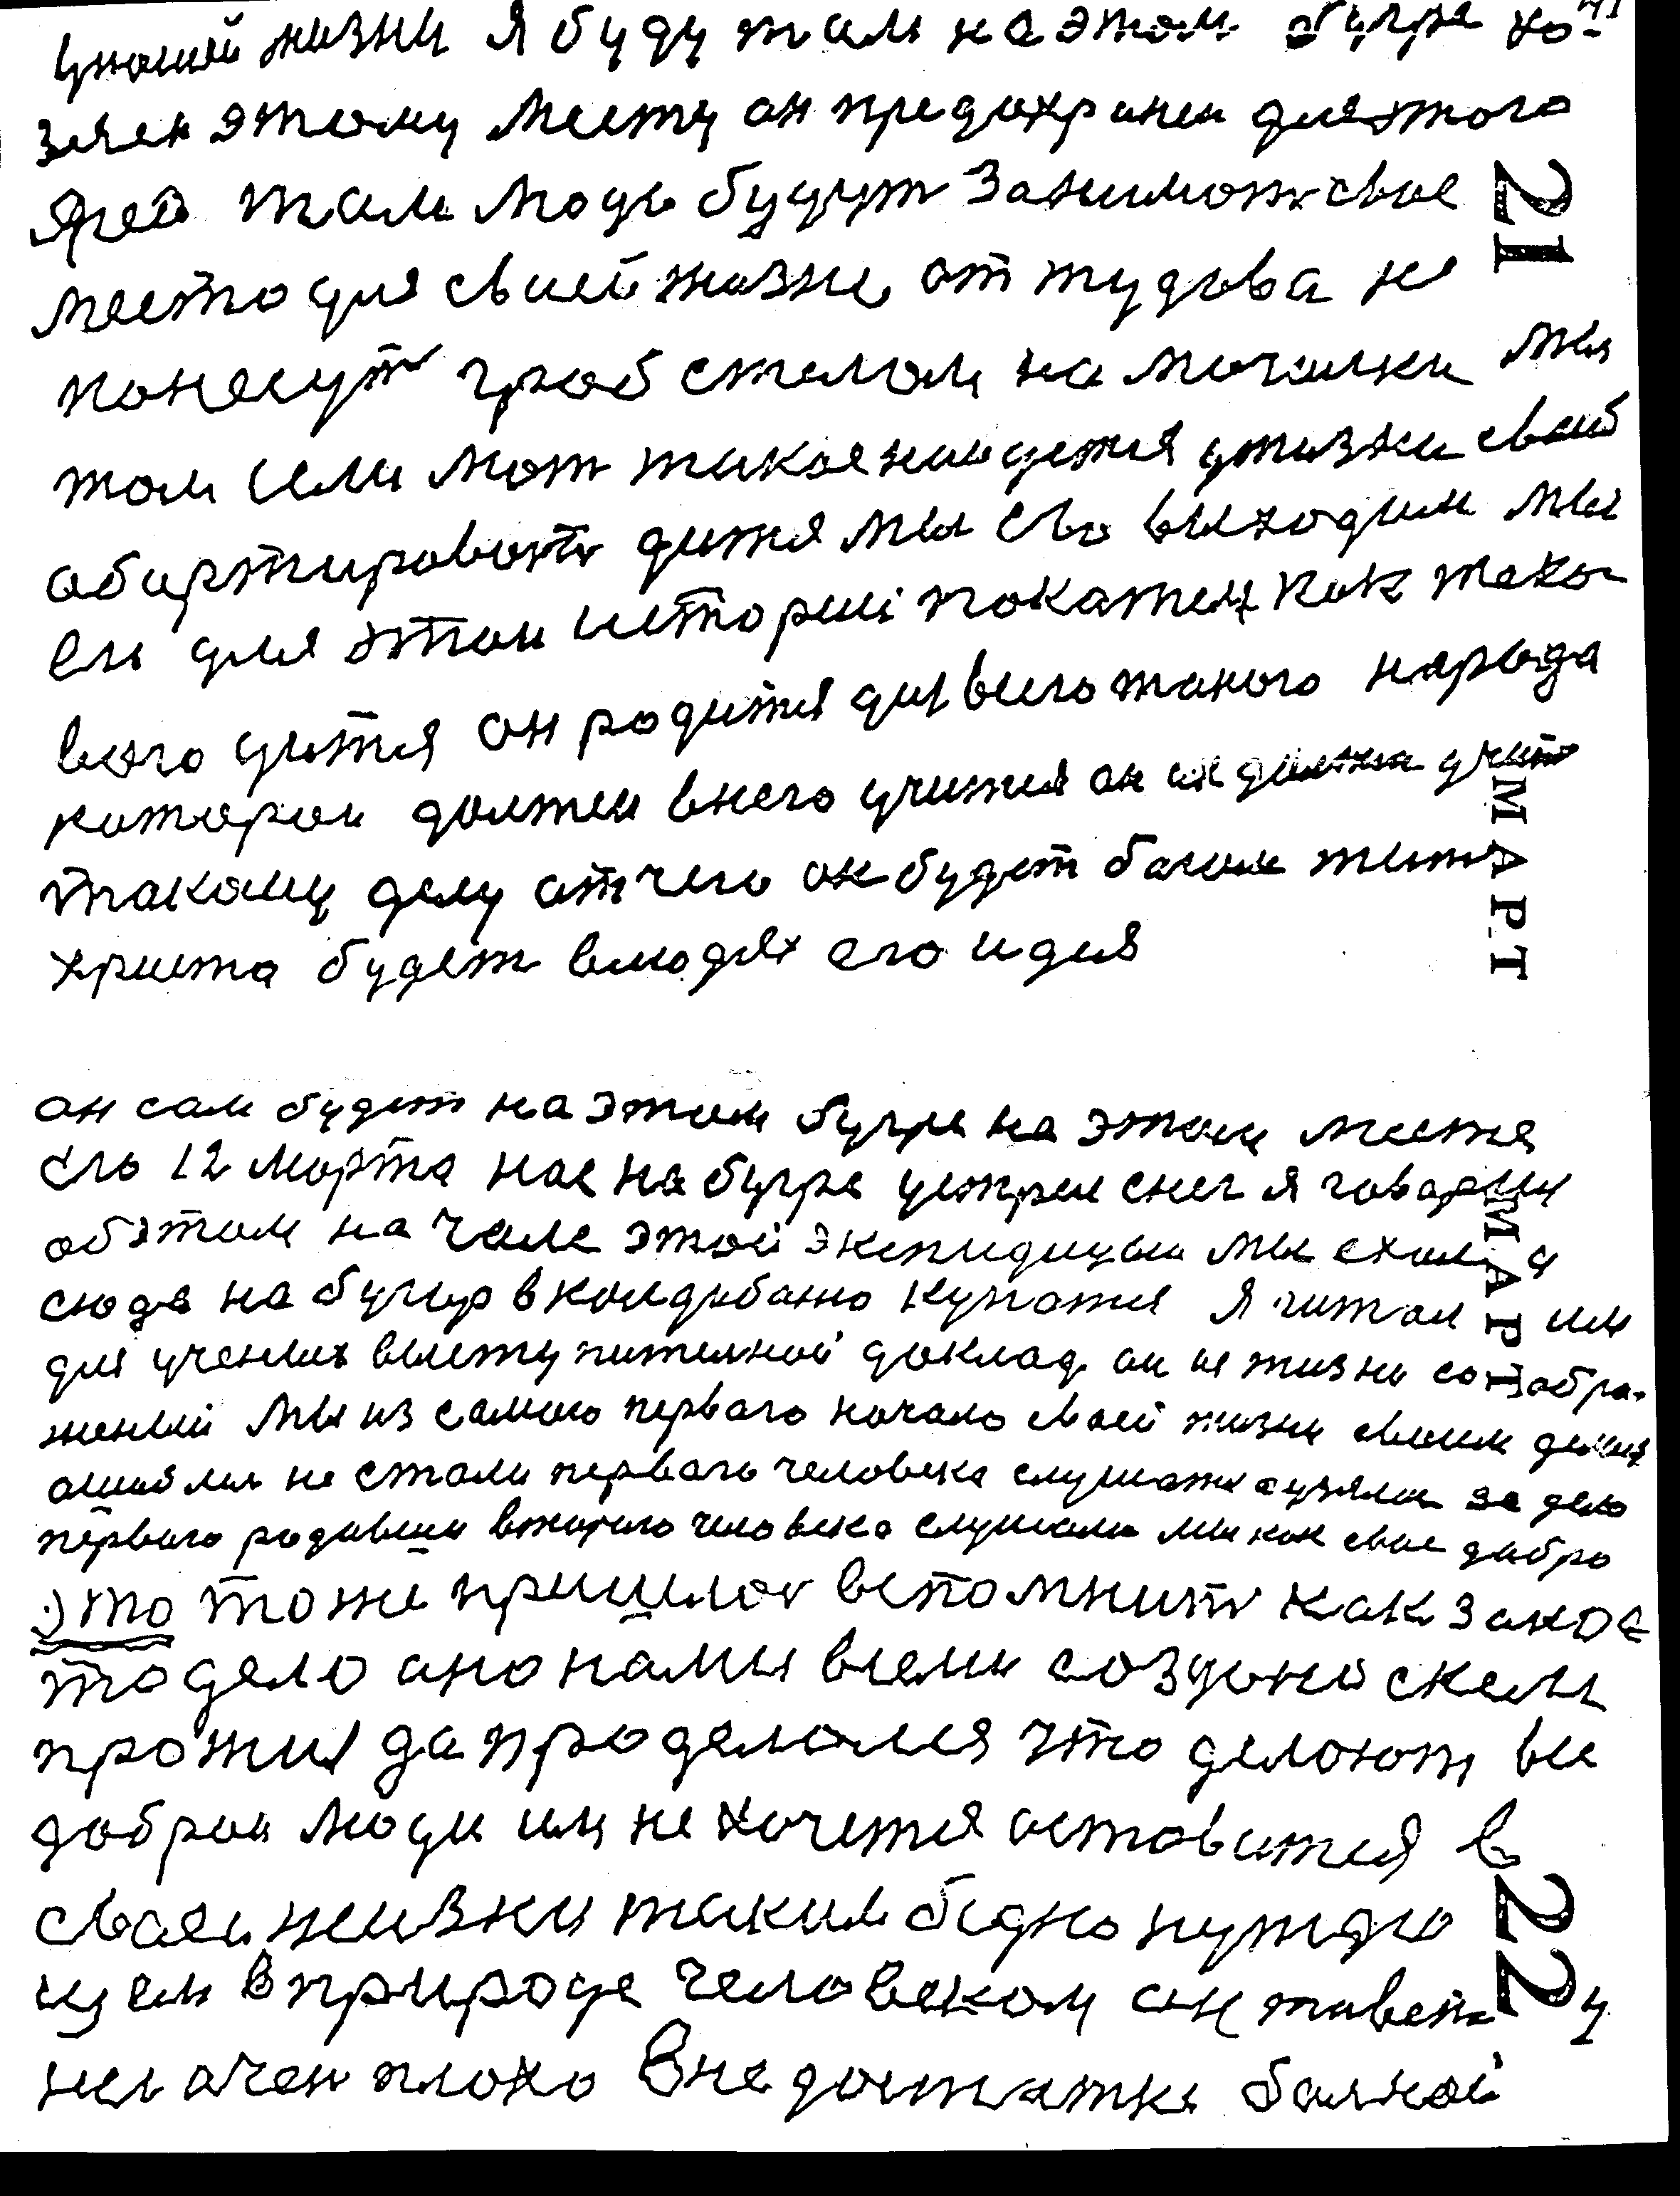 жизни я буду там на этом бугре хо-
зяен этому месту он предохранен для этого
рая там люде будут занимать свое
место для своей жизне от тудова не
понесут гроб стелом на могилки мы
там если мот такое найдется ужизни своей
абартировать дитя мы сво выходим мы
ел для этаи истории покажем как тако-
вого дитя он родится для всего такого народа
каторои должен внего учится он их должен учить
такому делу отчего он будет багом жить
христа будет влюдях его идея
он сам будет на этом бугре на этом месте
ель 12 марта нас на бугре устрел снег я говарю им
обэтом на чале этой экспидицыи мы ехали
сюда на бугир в колдыбаню купатся я читал им
для ученых выступителной доклад он из жизни соизобра-
жений мы из самого первого начало своей жизни своим делом
ошиблис не стали первого человека слушать а узялис за дело
первого родивши вторго человека слушали мы как свое добро
это тоже пришлос вспомнить как закоε
то дело оно нами всеми создоно скем
прожил да проделался что делают все
добраи люди им не хочется оставится в
своеи жизни таким бедно нуждаю
щем в природе человеком он живет у
ней очен плохо в недостатке болной
21
МАРТ
МАРТ
22